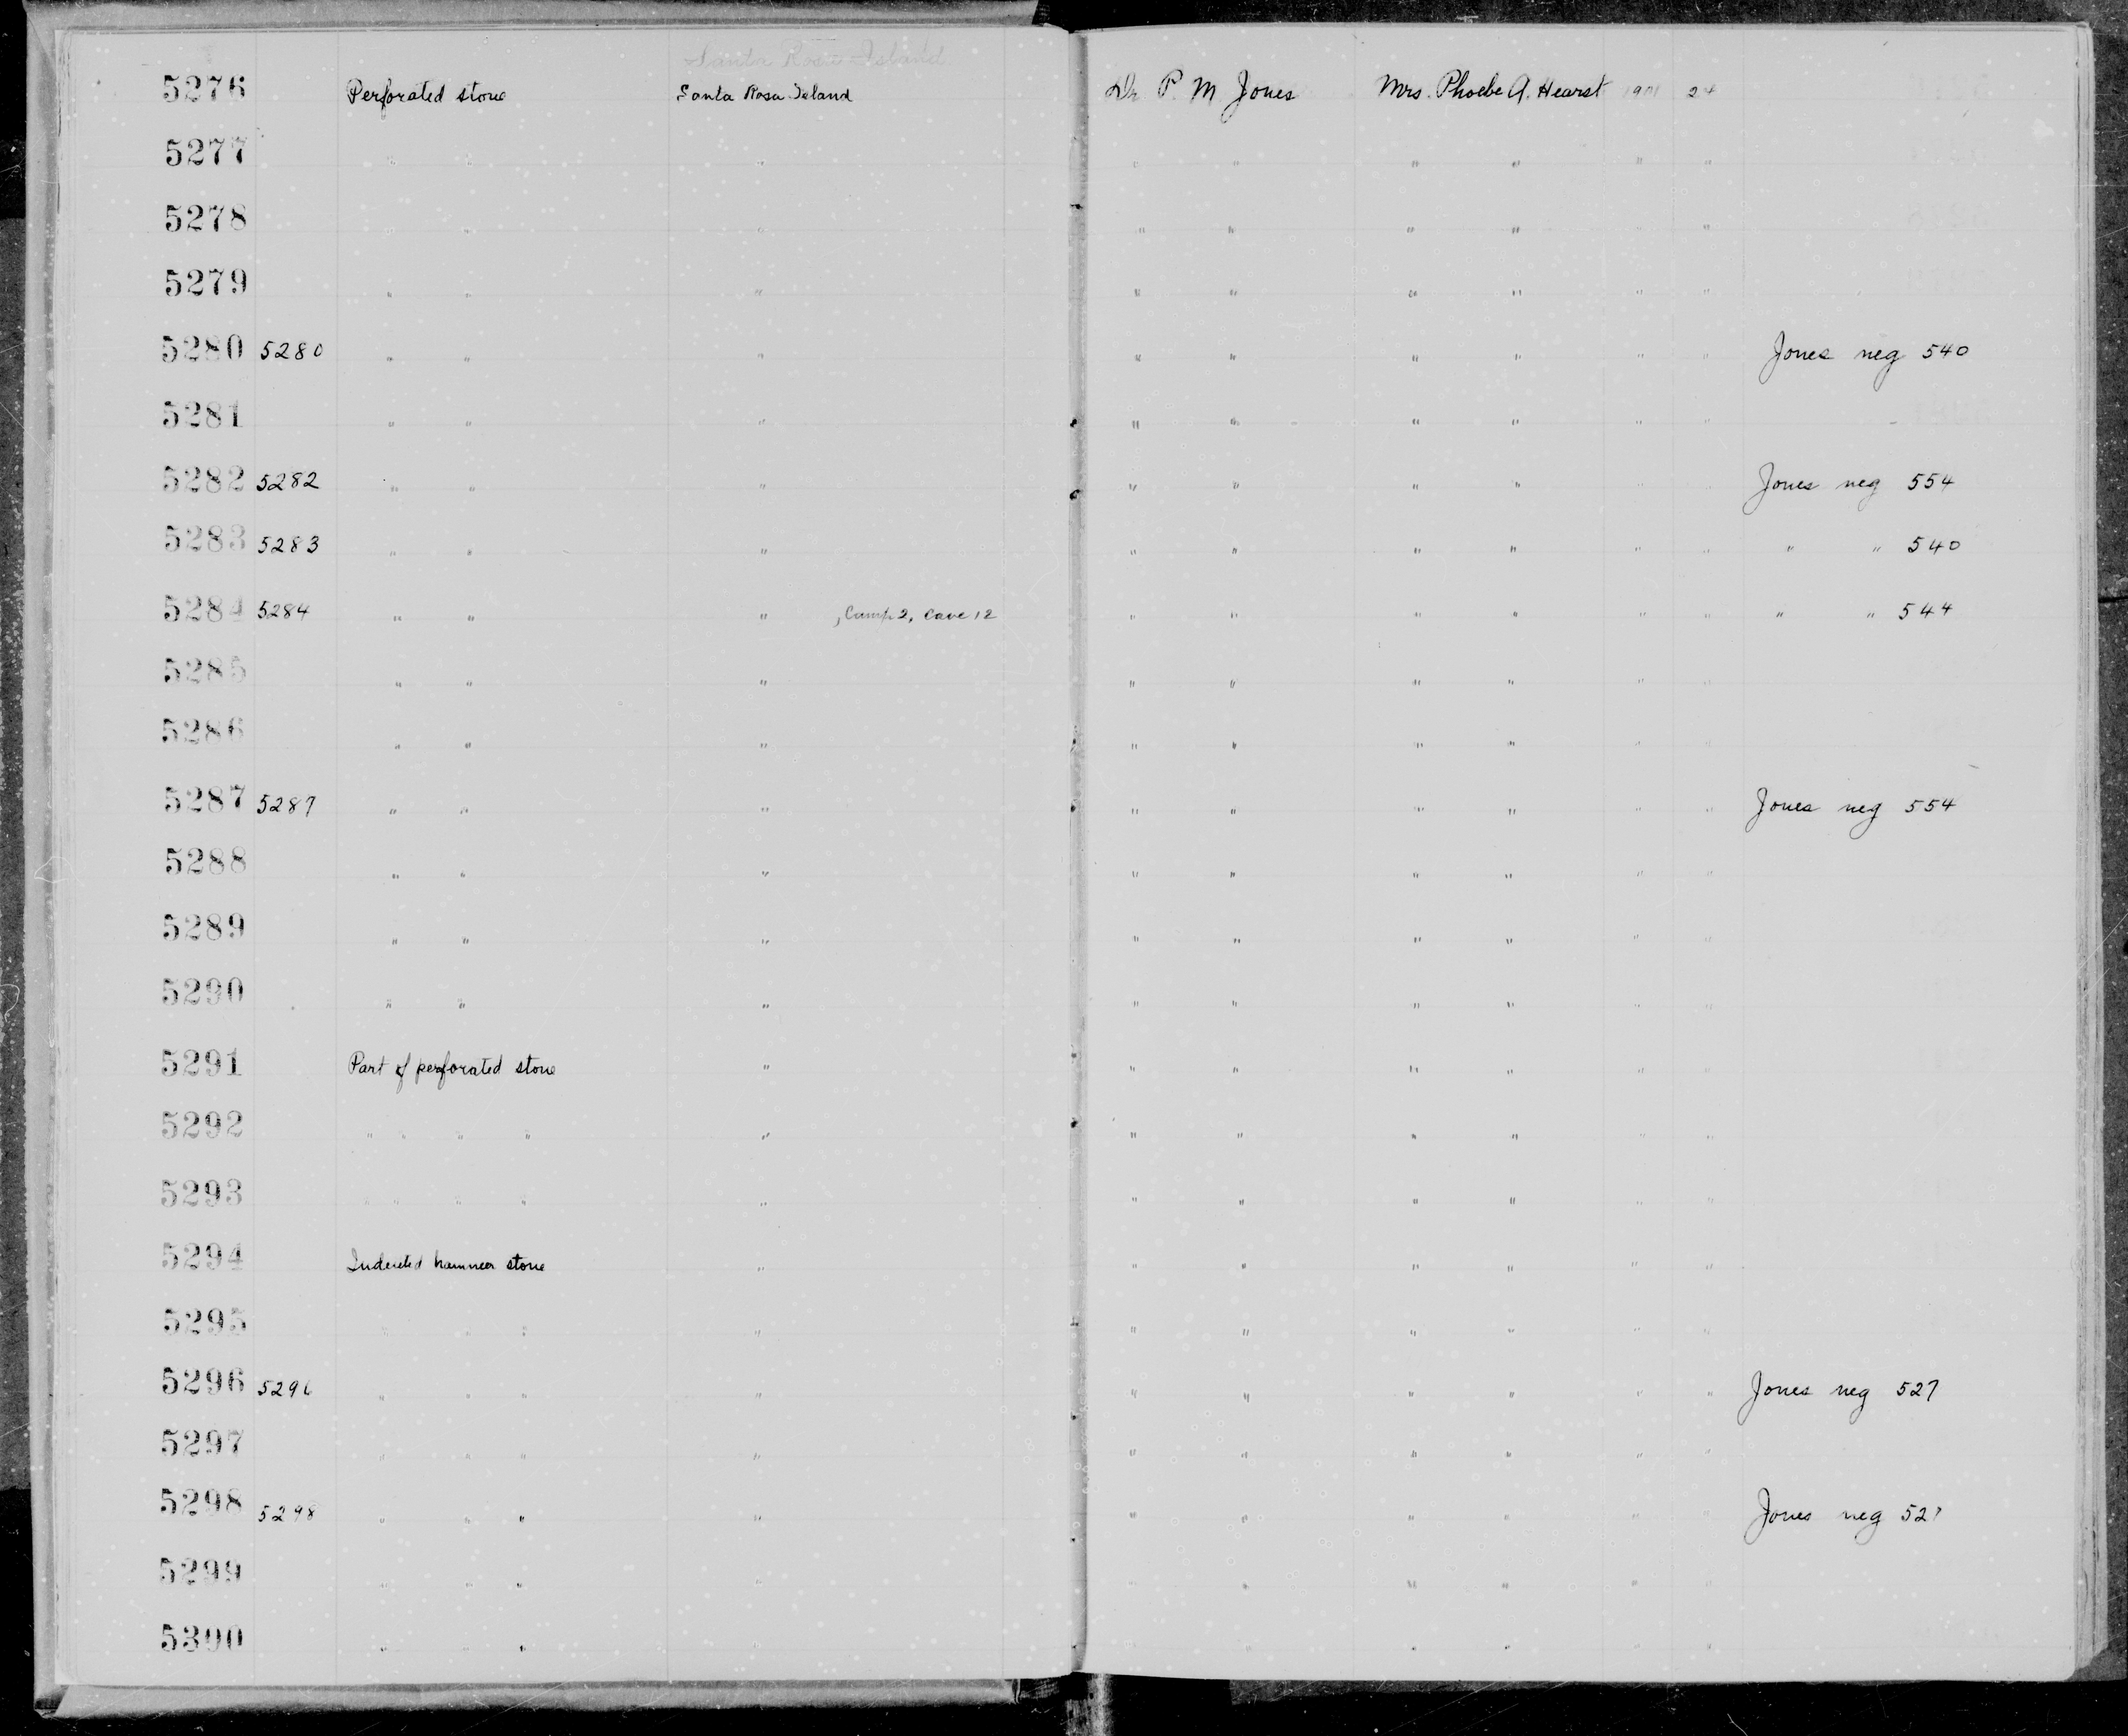 Santa Rosa Island
5276 Perforated stone Santa Rosa Island Dr P. M. Jones Mrs. Phoebe A. Hearst 1901 24
5277 " " " " " " " " "
5278 " " " " " " " " "
5279 " " " " " " " " "
5280 5280 " " " " " " " " " Jones neg 540
5281 " " " " " " " " "
5282 5282 " " " " " " " Jones neg 554
5283 5283 " " " " " " " " " " " 540
5284 5284 " " " , Camp 2, Cave 12 " " " " " " " " 544
5285 " " " " " " " " "
5286 " " " " " " " " "
5287 5287 " " " " " " " " " Jones neg 554
5288 " " " " " " " " "
5289 " " " " " " " " "
5290 " " " " " " " " "
5291 Part of perforated stone " " " " " " "
5292 " " " " " " " " " " "
5293 " " " " " " " " " " "
5294 Indented hammer stone " " " " " " "
5295 " " " " " " " " " "
5296 5296 " " " " " " " " " " Jones neg 527
5297 " " " " " " " " " "
5298 5298 " " " " " " " " " " Jones neg 527
5299 " " " " " " " " "
5300 " " " " " " " " "